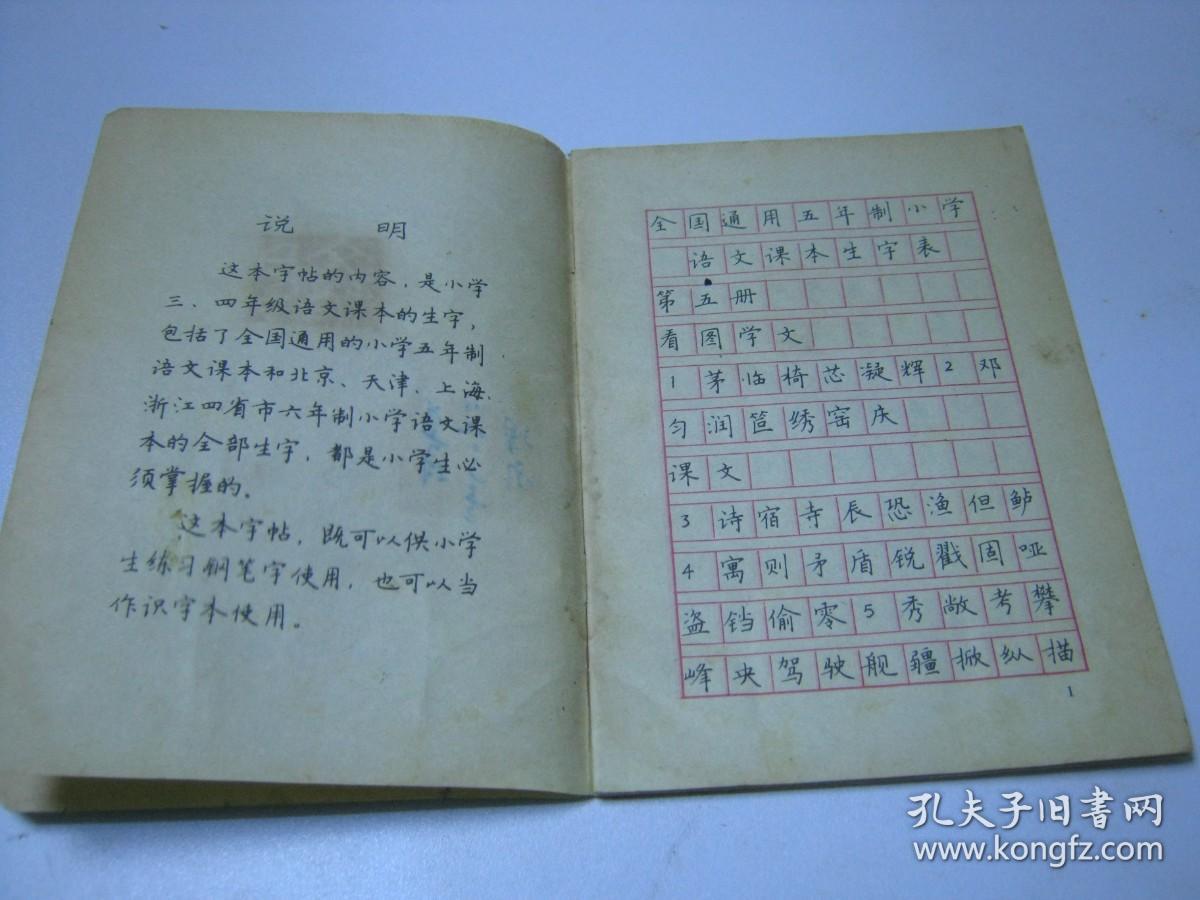 说 明
这本字帖的内容，是小学
三、四年级语文课本的生字，
包括了全国通用的小学五年制
语文课本和北京、天津、上海、
浙江四省市六年制小学语文课
本的全部生字，都是小学生必
须掌握的。
这本字帖，既可以供小学
生练习钢笔字使用，也可以当
作识字本使用。
全国通用五年制小学
语文课本生字表
第五册
看图学文
1 茅临椅芯凝辉 2 邓
匀润笸绣窑庆
课文
3 诗宿寺辰恐渔但鲈
4 寓则矛盾锐戳固哑
盗铛偷零 5 秀敞考攀
峰央驾驶舰疆掀纵描
1
孔夫子旧书网
www.kongfz.com